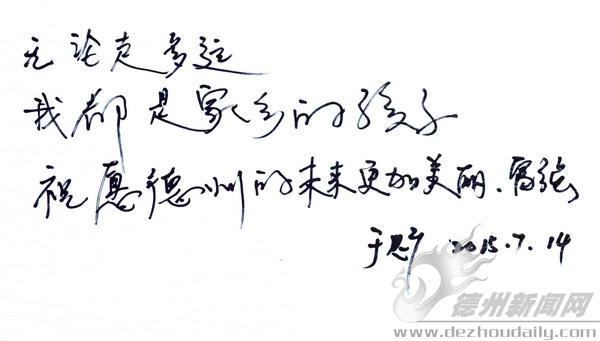 无论走多远
我都是家乡的孩子
祝愿德州的未来更加美丽、富强
于 2015.7.14
德州新闻网
www.dezhoudaily.com